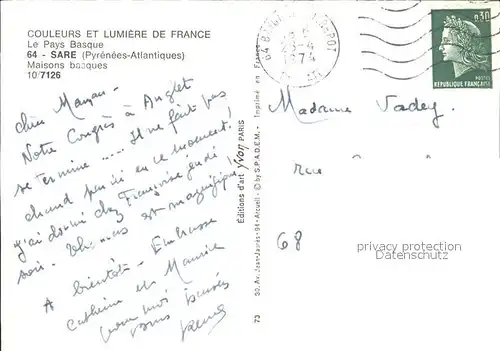 COULEURS ET LUMIÈRE DE FRANCE
Le Pays Basque
64 - SARE (Pyrénées-Atlantiques)
Maisons basques
10/7126
Chère Maman -
Notre Congrès à Anglet
se termine .... Il ne fait pas
chaud par ici en ce moment!
j'ai dormi chez Françoise jeudi
soir. Thomas est magnifique
A bientôt. Embrasse
Catherine et Maurice
pour moi
Éditions d'art yvon PARIS
30, Av. Jean-Jaurès - 94 - Arcueil - © by S.P.A.D.E.M. - Imprimé en France
73
0,30
POSTES
REPUBLIQUE FRANÇAISE
1974
Madame Vadey
rue
68
privacy protection
Datenschutz